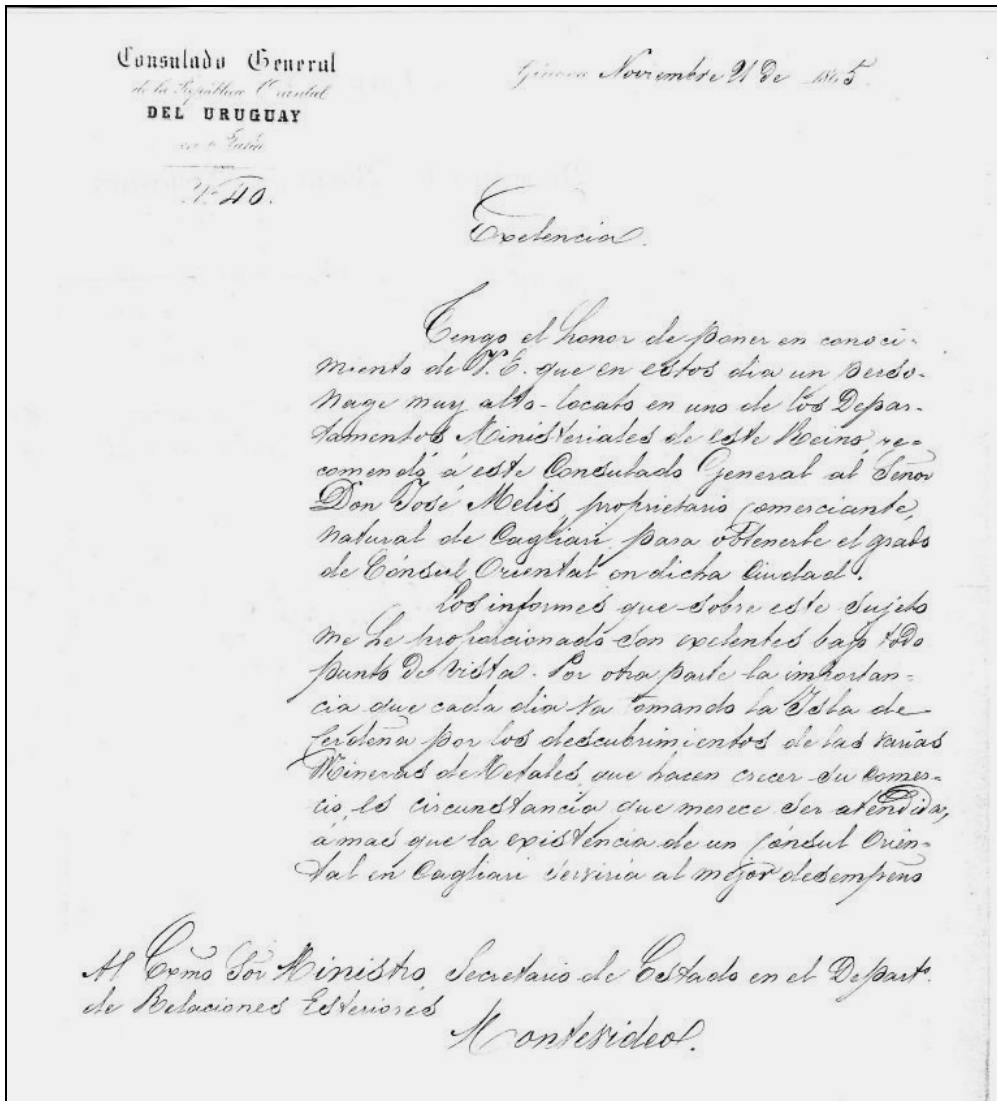 Consulado General
de la República Oriental
DEL URUGUAY
en Italia
Nº 40.
Génova Noviembre 21 de 1865.
Exelencia.
Tengo el honor de poner en conoci-
miento de V. E. que en estos dia un perso-
nage muy alto-locato en uno de los Depar-
tamentos Ministeriales de este Reino, re-
comendó á este Consulado General al Señor
Don José Melis, proprietario comerciante,
natural de Cagliari para obtenerle el grado
de Cónsul Oriental en dicha Ciudad.
Los informes que sobre este sujeto
me he proporcionado son exelentes bajo todo
punto de vista. Por otra parte la importan-
cia que cada dia va tomando la Isla de
Cerdeña por los descubrimientos de las varias
Mineras de Metales, que hacen crecer su comer-
cio, es circunstancia que merece ser atendida,
á mas que la existencia de un Cónsul Orien-
tal en Cagliari serviria al mejor desempeño
Al Exmo Sor Ministro, Secretario de Estado en el Departº.
de Relaciones Esteriores
Montevideo.